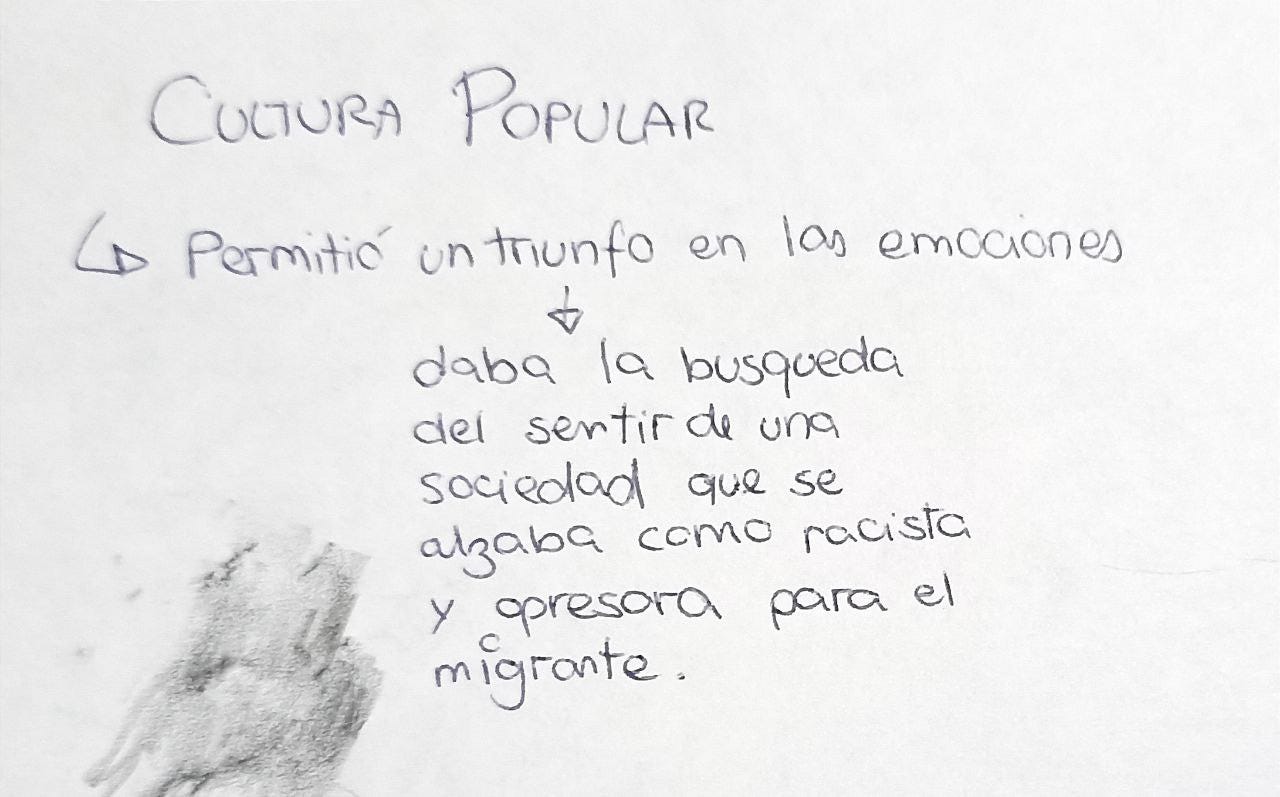 CULTURA POPULAR
Permitió un triunfo en las emociones
daba la busqueda
del sentir de una
sociedad que se
alzaba como racista
y opresora para el
migrante.